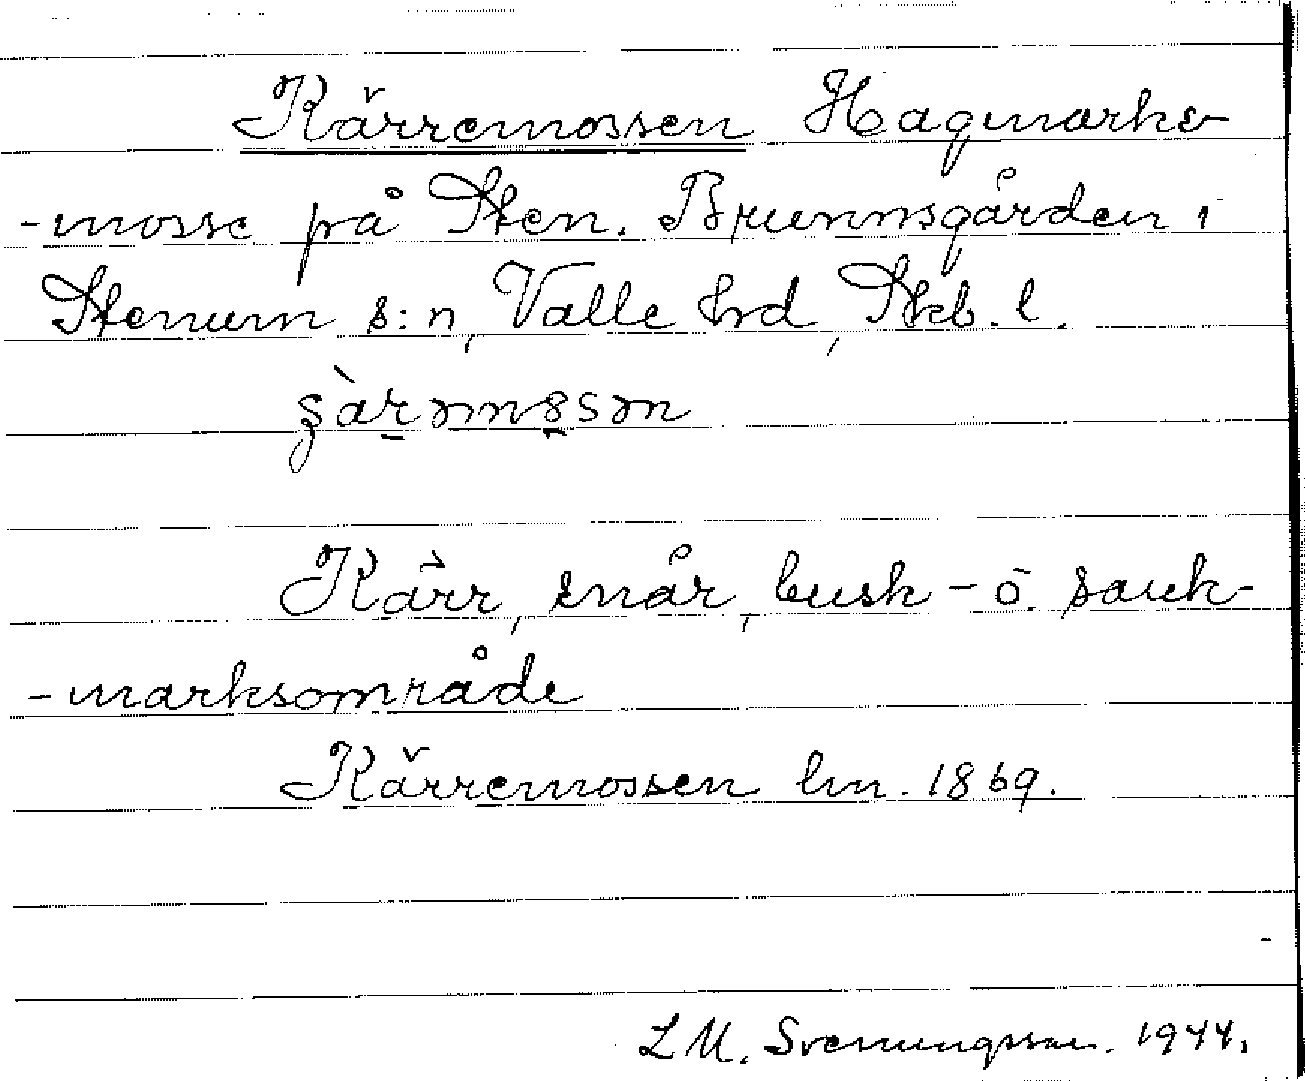 Kärremossen Hagmarks-
-mosse på Sten. Brunnsgården i
Stenum s:n, Valle hrd, Skb. l.
Kärr, snår, busk- o. sank-
-marksområde
Kärremossen lm. 1869.
L M. Svenungsson. 1944.